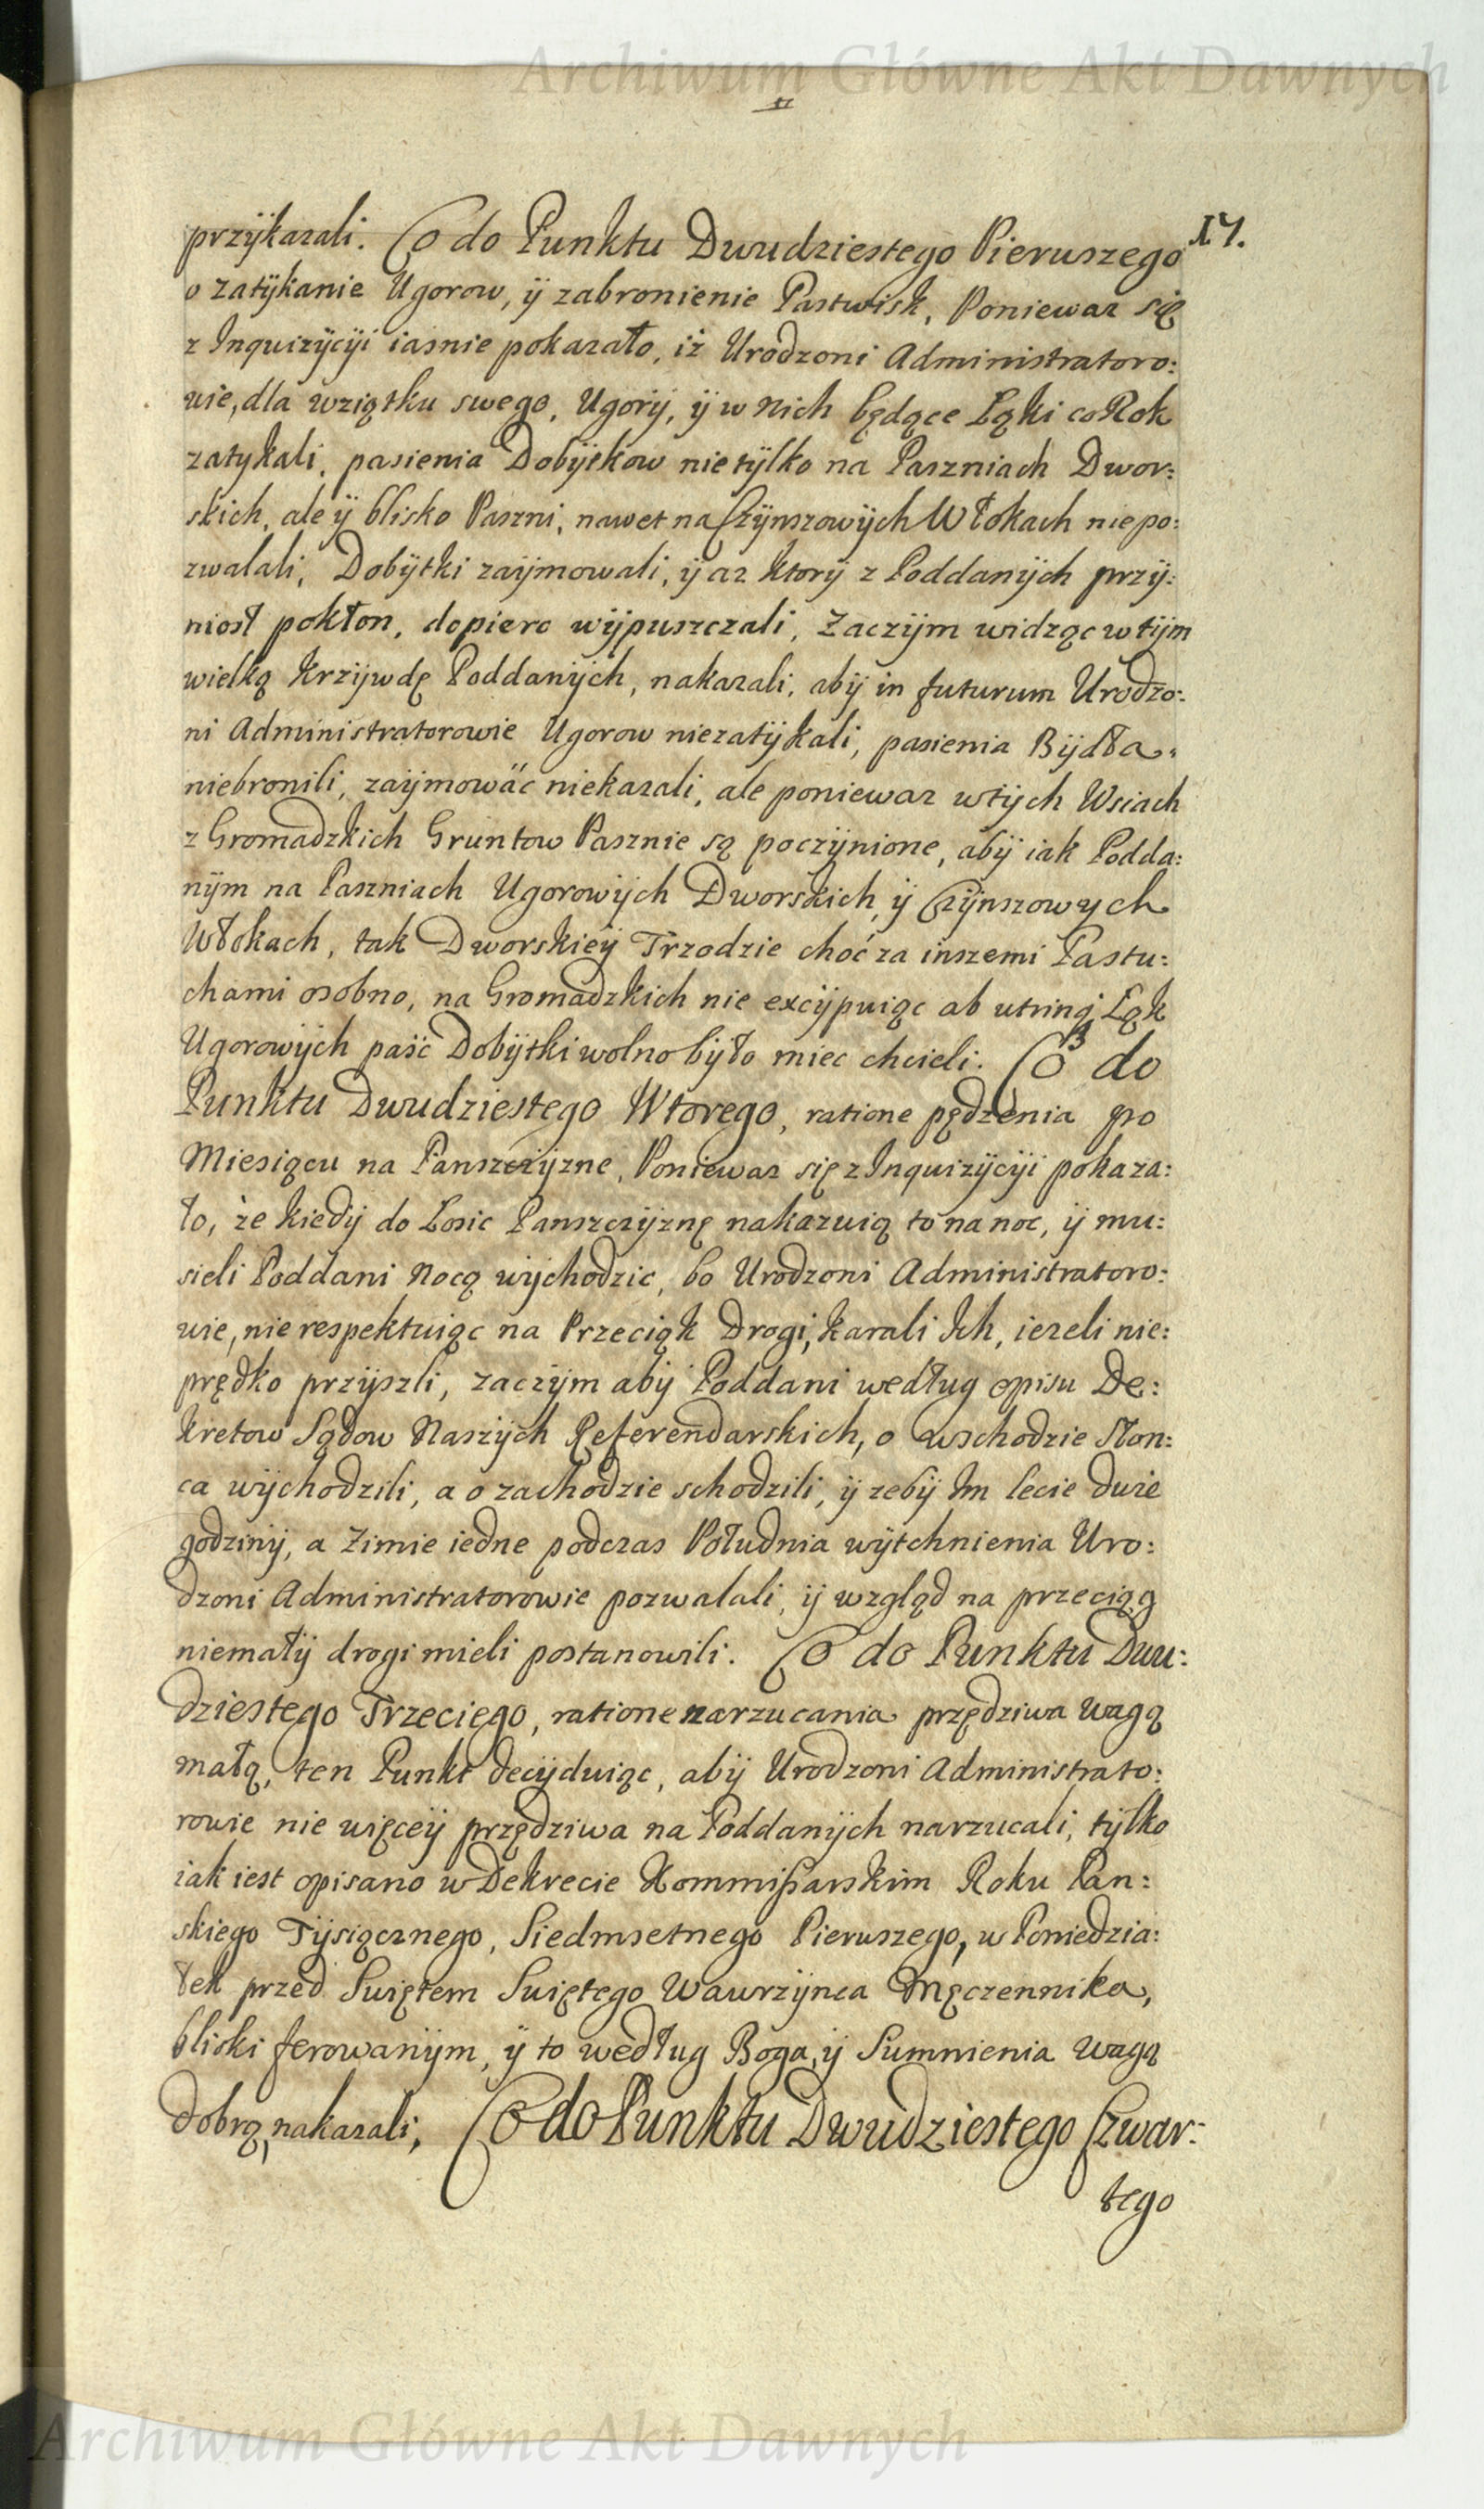 Archiwum Główne Akt Dawnych
17.
przÿkazali. Co do Punktu Dwudziestego Pierwszego
o zatÿkanie Ugorow, ÿ zabronienie Pastwisk, Poniewaz się
z Inquizÿcÿi iasnie pokazało, iż Urodzoni Administratoro:
wie, dla wziątku swego, Ugorÿ, ÿ w nich będące Łąki co Rok
zatykali, pasienia Dobÿtkow nie tÿlko na Paszniach Dwor:
skich, ale ÿ blisko Paszni, nawet na Czÿnszowÿch Włokach nie po:
zwalali, Dobÿtki zaÿmowali, ÿ az ktorÿ z Poddanÿch przÿ:
niosł pokłon, dopiero wÿpuszczali, Zaczÿm widząc w tÿm
wielką krzÿwdę Poddanÿch, nakazali, abÿ in futurum Urodzo:
ni Administratorowie Ugorow niezatÿkali, pasienia Bÿdła
niebronili, zaÿmowäc niekazali, ale poniewaz w tÿch Wsiach
z Gromadzkich Gruntow Pasznie są poczÿnione, abÿ iak Podda:
nÿm na Paszniach Ugorowÿch Dworskich, ÿ Czÿnszowych
Włokach, tak Dworskieÿ Trzodzie choć za inszemi Pastu:
chami osobno, na Gromadzkich nie excÿpuiąc ab utrinq3 Łąk
Ugorowÿch paść Dobÿtki wolno bÿło miec chcieli. Co do
Punktu Dwudziestego Wtorego, ratione pędzenia po
Miesiącu na Panszczÿzne, Poniewaz się z Inquizÿcÿi pokaza:
ło, że kiedÿ do Łosic Panszczÿznę nakazuią to na noc, ÿ mu:
sieli Poddani Nocą wÿchodzic, bo Urodzoni Administratoro:
wie, nie respektuiąc na Przeciąk Drogi, karali Ich, iezeli nie:
prędko przÿszli, zaczÿm abÿ Poddani według opisu De:
kretow Sądow Naszÿch Referendarskich, o wschodzie Słon:
ca wÿchodzili, a o zachodzie schodzili, ÿ zebÿ Im lecie dwie
godzinÿ, a Zimie iedne podczas Południa wÿtchnienia Uro:
dzoni Administratorowie pozwalali, ÿ wzgląd na przeciąg
niemałÿ drogi mieli postanowili. Co do Punktu Dwu:
dziestego Trzeciego, ratione narzucania przędziwa wagą
małą, ten Punkt decÿduiąc, abÿ Urodzoni Administrato:
rowie nie więceÿ przędziwa na Poddanÿch narzucali, tÿlko
iak iest opisano w Dekrecie Kommißarskim Roku Pan:
skiego Tÿsiącznego, Siedmsetnego Pierwszego, w Poniedzia:
łek przed Swiętem Swiętego Wawrzÿnca Męczennika,
bliski ferowanÿm, ÿ to według Boga, ÿ Sumnienia wagą
dobrą, nakazali, Co do Punktu Dwudziestego Czwar:
tego
Archiwum Główne Akt Dawnych